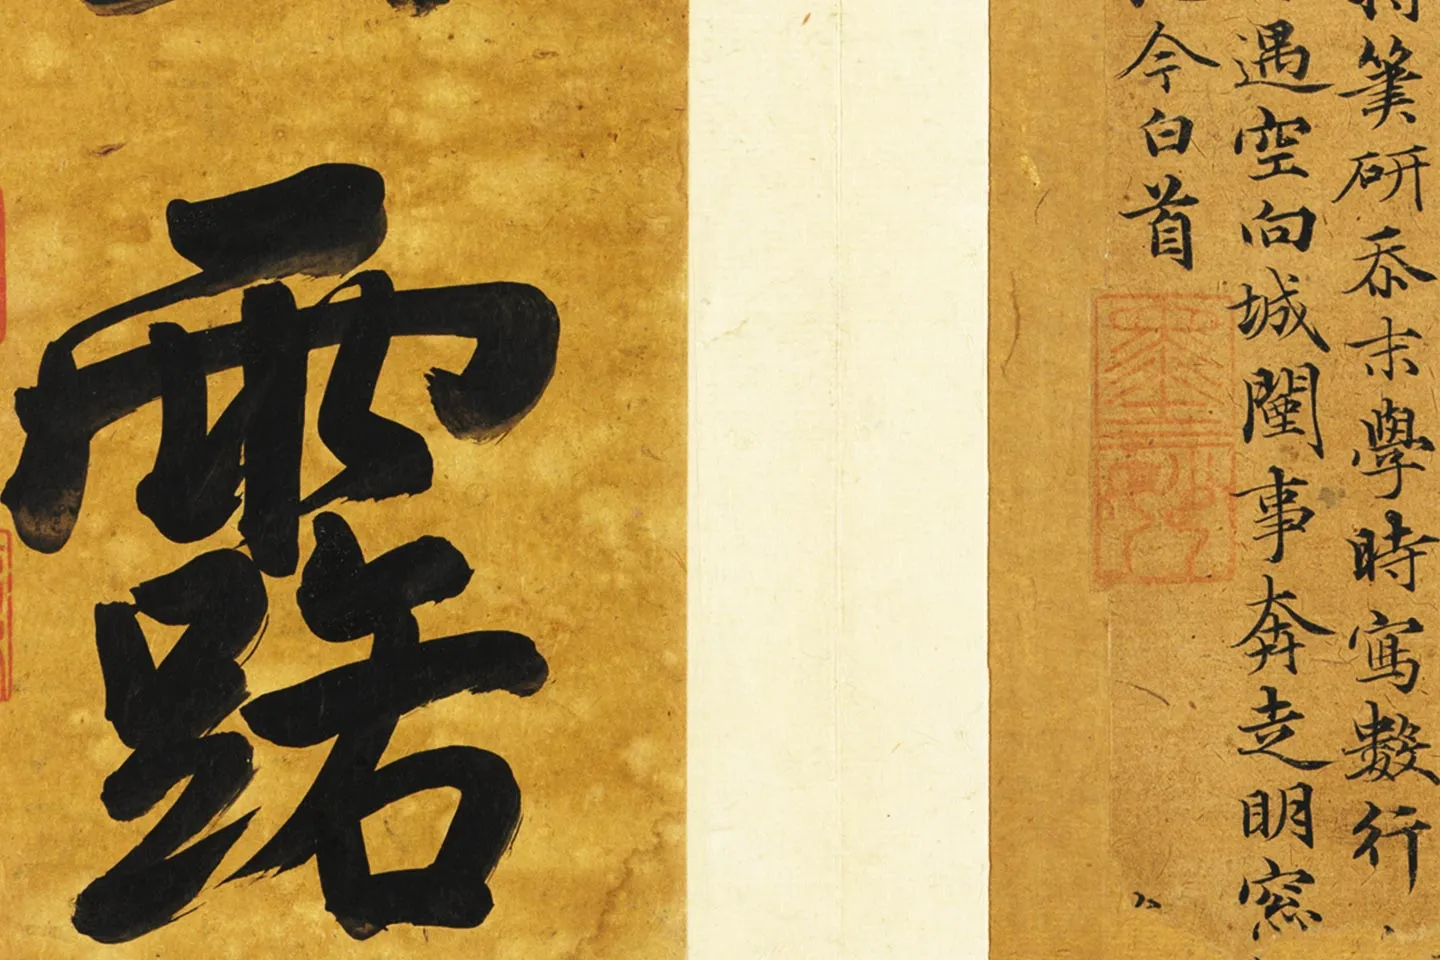 筆研忝末學時寫數行
遇空向城闉事奔走明窓
今白首
露